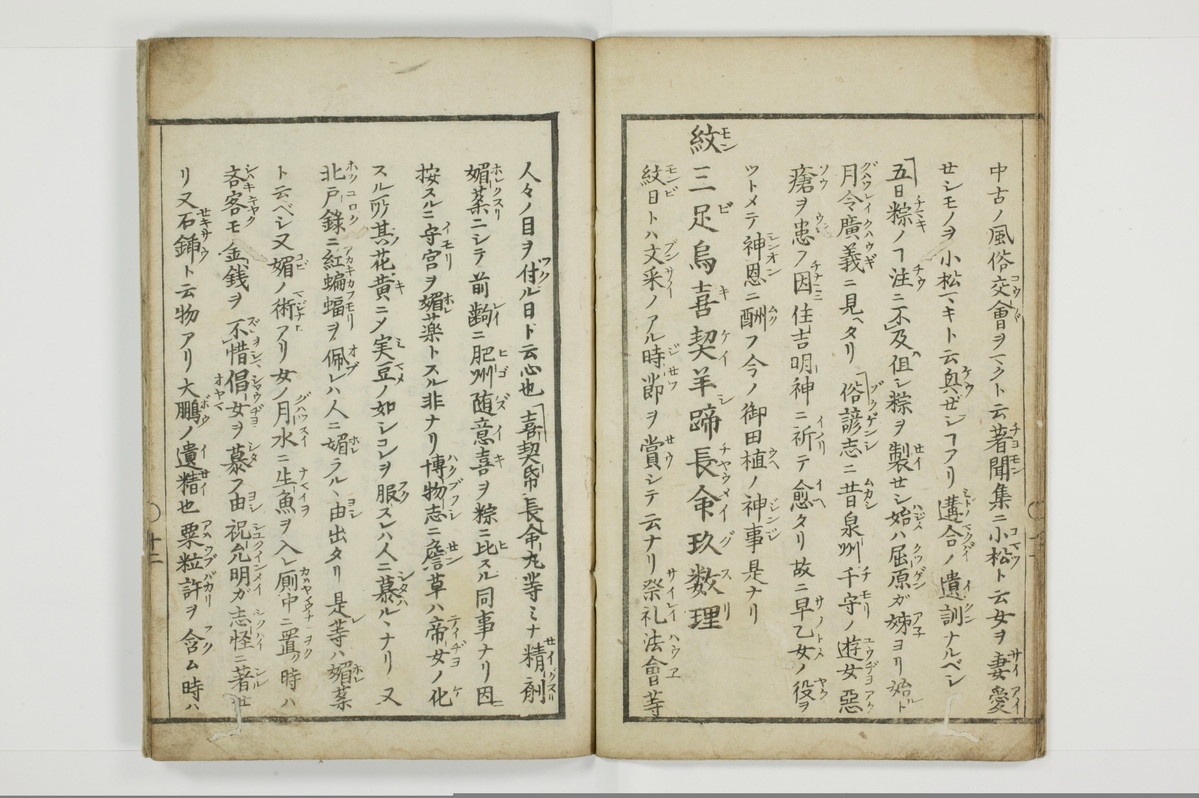 中古ノ風俗交會ヲマクト云著聞集ニ小松ト云女ヲ妻愛
セシモノヲ小松マキト云真ぜンフフリ遘合ノ遺訓ナルベシ
五日粽ノ「注ニ不及但シ粽ヲ製セシ始ハ屈原ガ姊ヨリ始ト
月令廣義ニ見ヘタリ「俗諺志ニ昔泉州千守ノ遊女惡
瘡ヲ患フ因住吉明神ニ祈テ愈タリ故ニ早乙女ノ役ヲ
ツトメテ神恩ニ酬フ今ノ御田植ノ神事是ナリ
紋三足烏喜契羊蹄長命玖数理
紋日トハ文采ノアル時節ヲ賞シテ云ナリ祭礼法會等
人々ノ目ヲ付ル日ト云心也「喜契帋長命丸等ミナ精剤
媚薬ニシテ前齣ニ肥州随意喜ヲ粽ニ比スル同事ナリ因ニ
按スルニ守宮ヲ媚薬トスル非ナリ博物志ニ詹草ハ帝女ノ化
スル所其花黄ニメ実豆ノ如シコレヲ服スレハ人ニ慕ル丶ナリ又
北戸錄ニ紅蝙蝠ヲ佩レハ人ニ媚ラル丶由出タリ是等ハ媚薬
ト云ベシ又媚ノ術アリ女ノ月水ニ生魚ヲ入レ厠中ニ置ク時ハ
吝客モ金銭ヲ不惜倡女ヲ慕フ由祝允明ガ志怪ニ著セ
リ又石鏥ト云物アリ大鵬ノ遺精也粟粒許ヲ含ム時ハ
十二